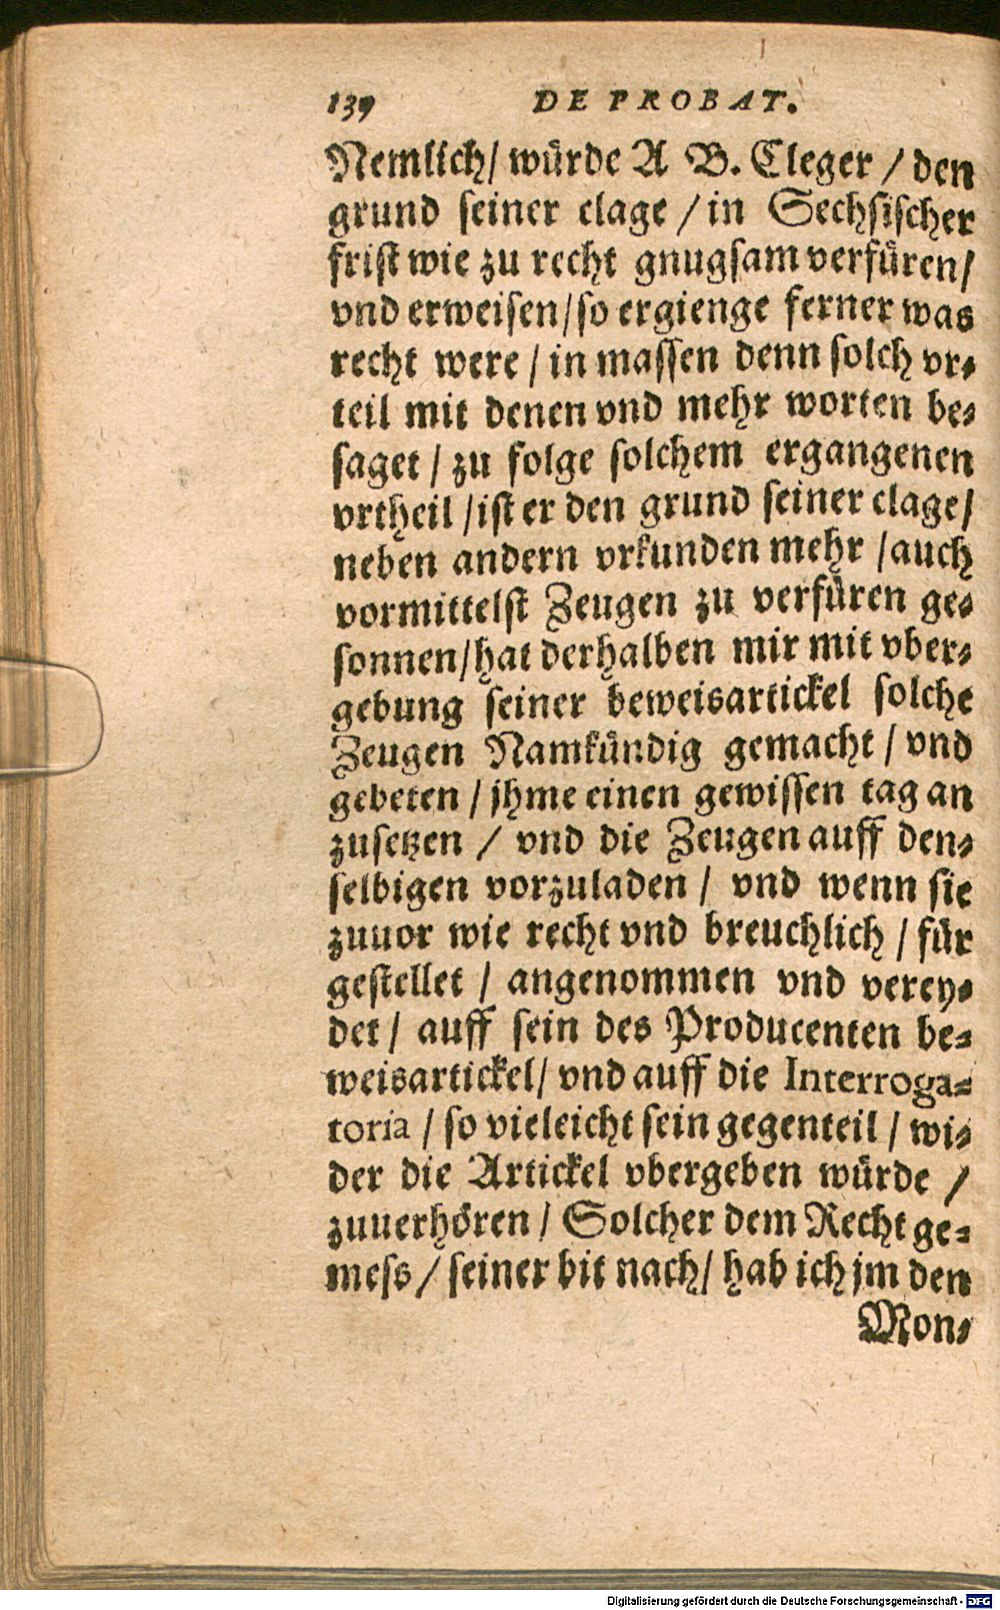 139 DE PROBAT.
Nemlich/ würde A B. Cleger / den
grund seiner clage / in Sechsischer
frist wie zu recht gnugsam verfüren/
vnd erweisen/so ergienge ferner was
recht were / in massen denn solch vr⸗
teil mit denen vnd mehr worten be⸗
saget / zu folge solchem ergangenen
vrtheil /ist er den grund seiner clage/
neben andern vrkunden mehr /auch
vormittelst Zeugen zu verfüren ge⸗
sonnen/hat derhalben mir mit vber⸗
gebung seiner beweisartickel solche
Zeugen Namkündig gemacht / vnd
gebeten / jhme einen gewissen tag an
zusetzen / vnd die Zeugen auff den⸗
selbigen vorzuladen / vnd wenn sie
zuuor wie recht vnd breuchlich / für
gestellet / angenommen vnd verey⸗
det / auff sein des Producenten be⸗
weisartickel/ vnd auff die Interroga⸗
toria / so vieleicht sein gegenteil / wi⸗
der die Artickel vbergeben würde /
zuuerhören / Solcher dem Recht ge⸗
mess / seiner bit nach/ hab ich jm den
Mon⸗
Digitalisierung gefördert durch die Deutsche Forschungsgemeinschaft - DFG